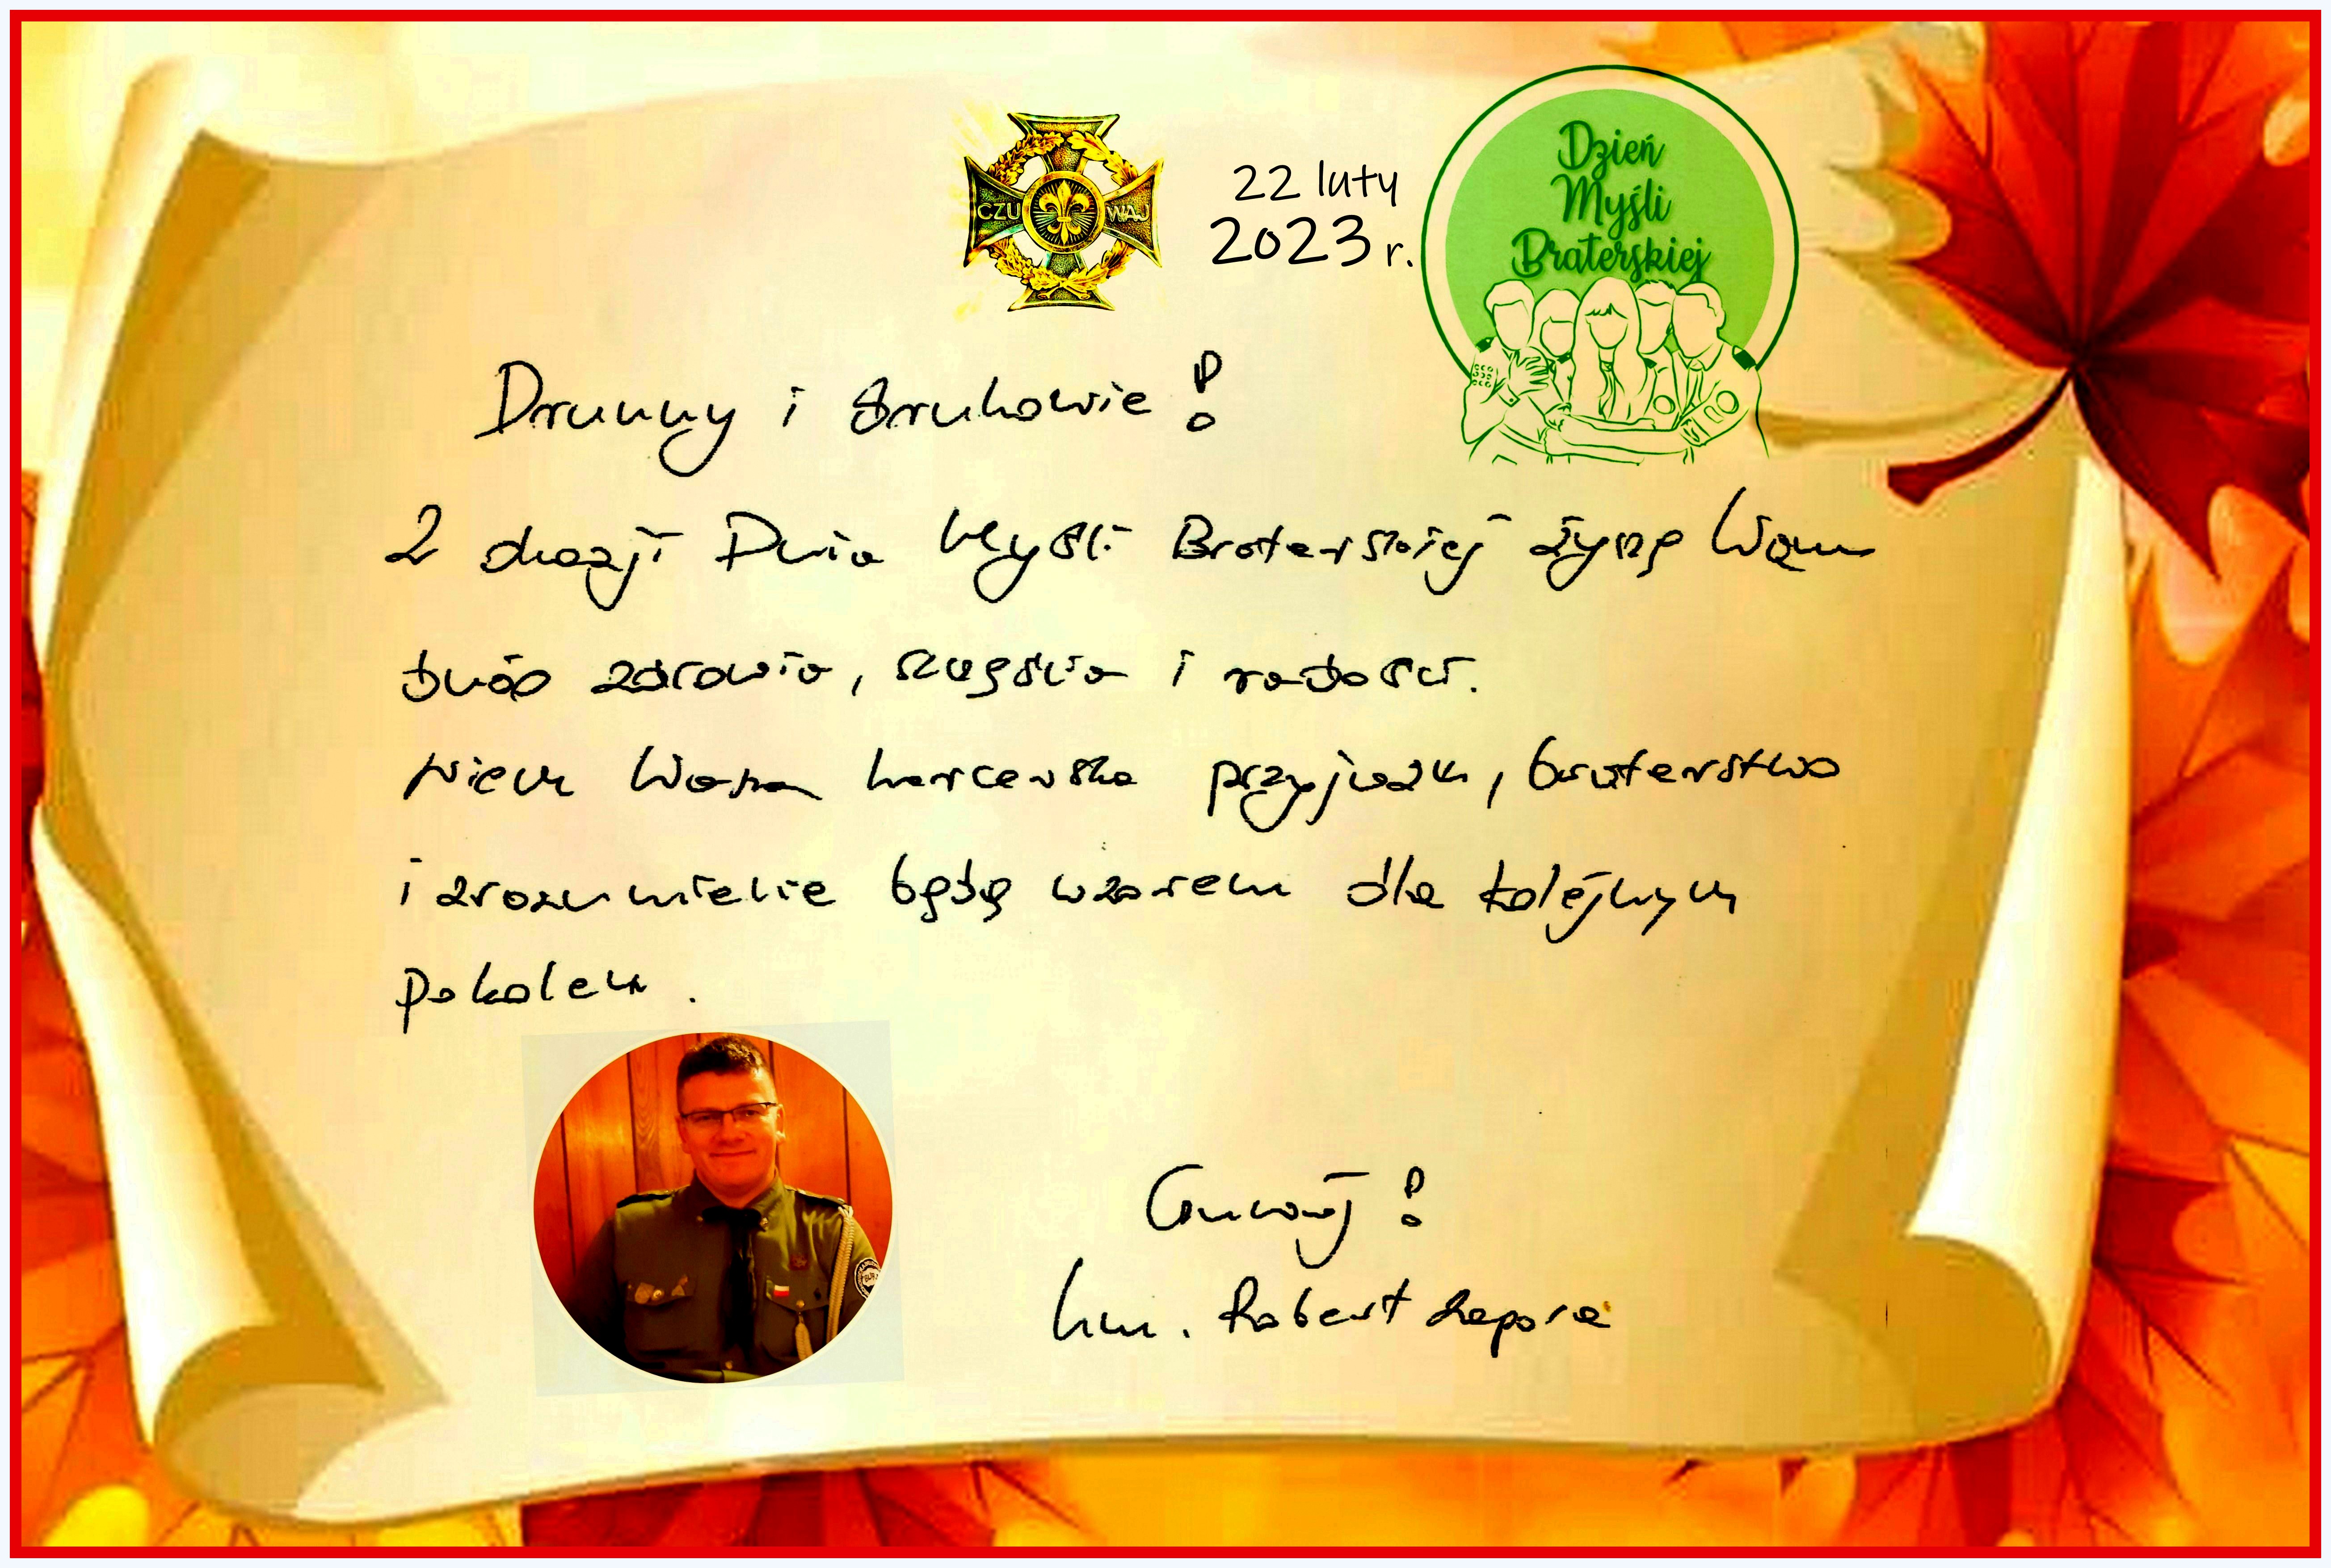 CZUWAJ
22 luty
2023 r.
Dzień
Myśli
Braterskiej
Druhny i druhowie!
Z okazji Dnia Myśli Braterskiej życzę Wam
dużo zdrowia, szczęścia i radości.
Niech Wasza harcerska przyjaźń, braterstwo
i zrozumienie będą wzorem dla kolejnych
pokoleń.
Czuwaj!
hm. Robert